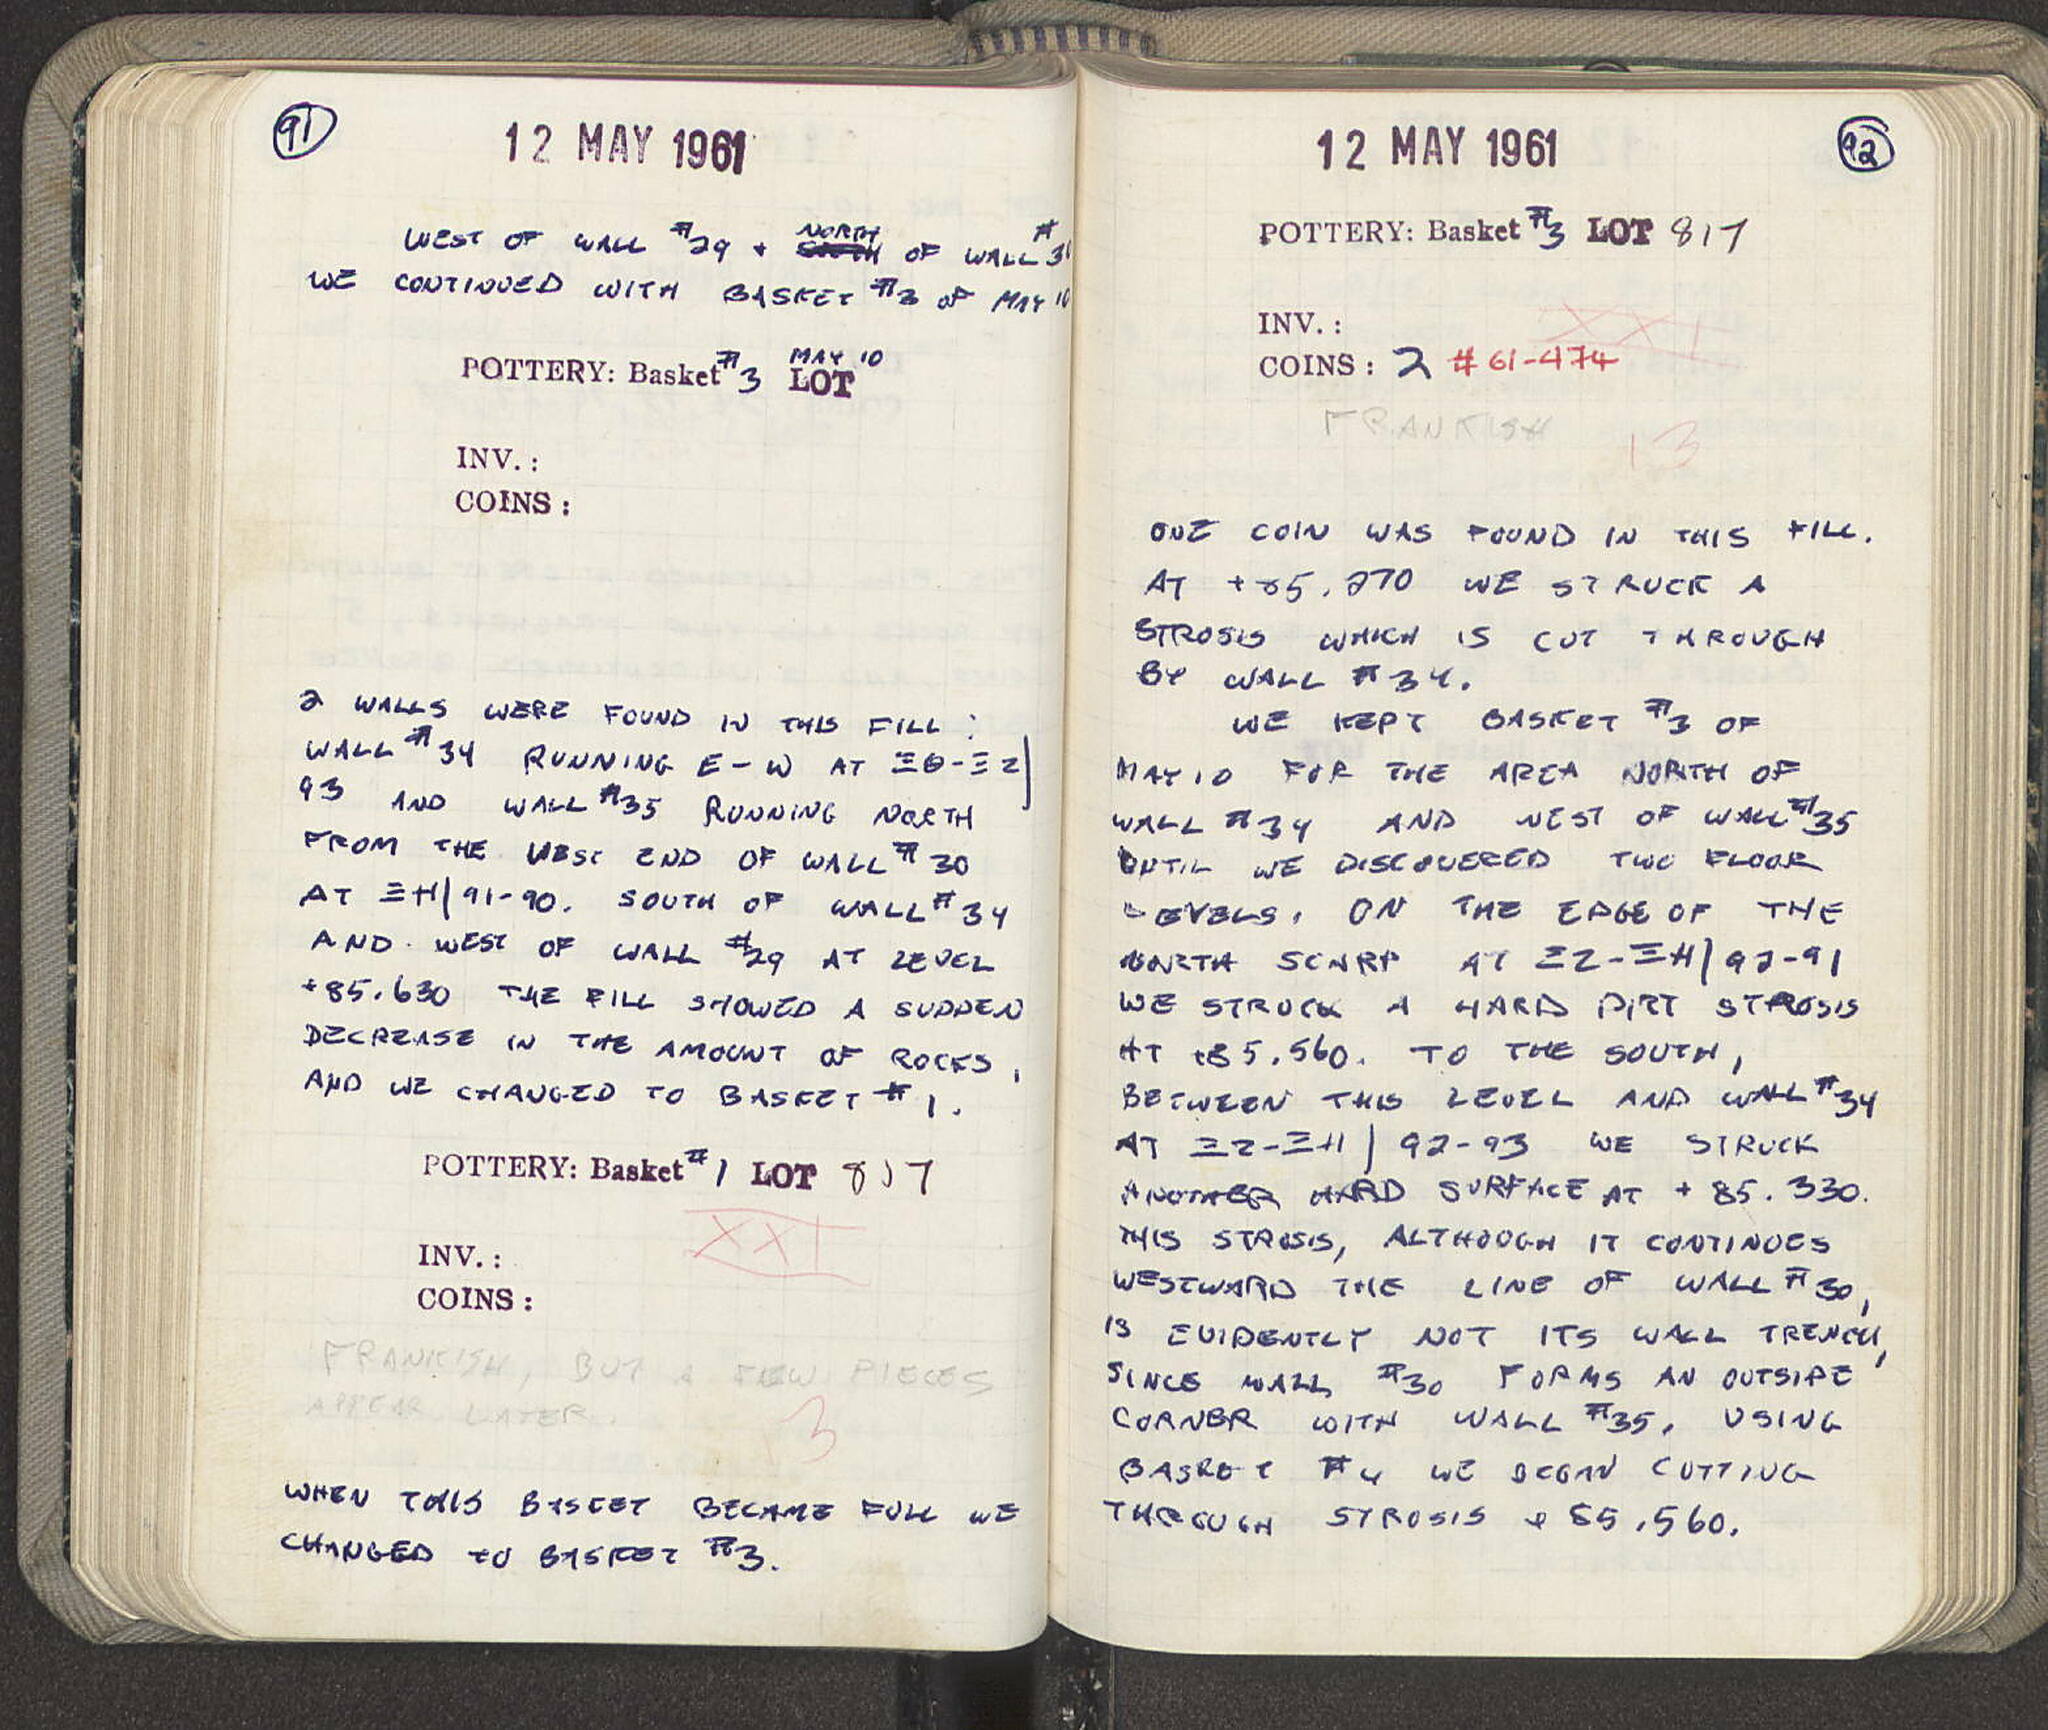 91
12 MAY 1961
WEST OF WALL #29 + NORTH OF WALL #
WE CONTINUED WITH BASKET #3 OF MAY 10
POTTERY: Basket #3 MAY 10 LOT
INV.:
COINS:
2 WALLS WERE FOUND IN THIS FILL:
WALL #34 RUNNING E-W AT ΞΘ-ΞΖ|
93 AND WALL #35 RUNNING NORTH
FROM THE WEST END OF WALL #30
AT ΞΗ|91-90. SOUTH OF WALL #34
AND WEST OF WALL #29 AT LEVEL
+85.630 THE FILL SHOWED A SUDDEN
DECREASE IN THE AMOUNT OF ROCKS,
AND WE CHANGED TO BASKET #1.
POTTERY: Basket #1 LOT 817
XXI
INV.:
COINS:
FRANKISH, BUT A FEW PIECES
APPEAR LATER.
13
WHEN THIS BASKET BECAME FULL WE
CHANGED TO BASKET #3.
92
12 MAY 1961
POTTERY: Basket #3 LOT 817
XXI
INV.:
COINS: 2 #61-474
FRANKISH
13
ONE COIN WAS FOUND IN THIS FILL.
AT +85.270 WE STRUCK A
STROSIS WHICH IS CUT THROUGH
BY WALL #34.
WE KEPT BASKET #3 OF
MAY 10 FOR THE AREA NORTH OF
WALL #34 AND WEST OF WALL #35
UNTIL WE DISCOVERED TWO FLOOR
LEVELS. ON THE EDGE OF THE
NORTH SCARP AT ΞΖ-ΞΗ|92-91
WE STRUCK A HARD DIRT STROSIS
AT +85.560. TO THE SOUTH,
BETWEEN THIS LEVEL AND WALL #34
AT ΞΖ-ΞΗ|92-93 WE STRUCK
ANOTHER HARD SURFACE AT +85.330.
THIS STROSIS, ALTHOUGH IT CONTINUES
WESTWARD THE LINE OF WALL #30,
IS EVIDENTLY NOT ITS WALL TRENCH,
SINCE WALL #30 FORMS AN OUTSIDE
CORNER WITH WALL #35. USING
BASKET #4 WE BEGAN CUTTING
THROUGH STROSIS +85.560.